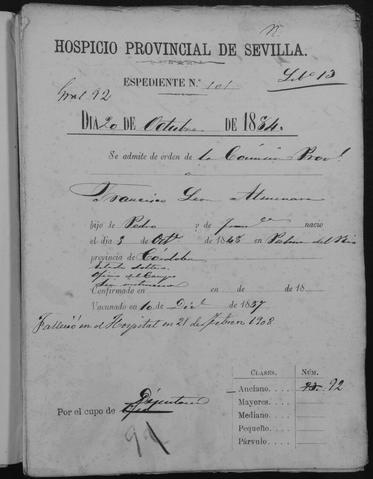 HOSPICIO PROVINCIAL DE SEVILLA.
EXPEDIENTE N.º 101
L.º 13
Gral 92
DIA 20 DE Octubre DE 1834.
Se admite de orden de la Comisión Prov.l
a
Francisco Leon Almenara
hijo de Pedro y de nacio
el dia 3 de Oct.e de 1843 en Palma del Rio
provincia de Córdoba
Estado soltero
Oficio del Campo
Confirmado en de de 18
Vacunado en 10 de Dic.e 1857
Falleció en el Hospital en 28 de Febrero 1908
CLASES NÚM.
Anciano. 92
Mayores.
Mediano.
Pequeño.
Párvulo.
Por el cupo de Diputación